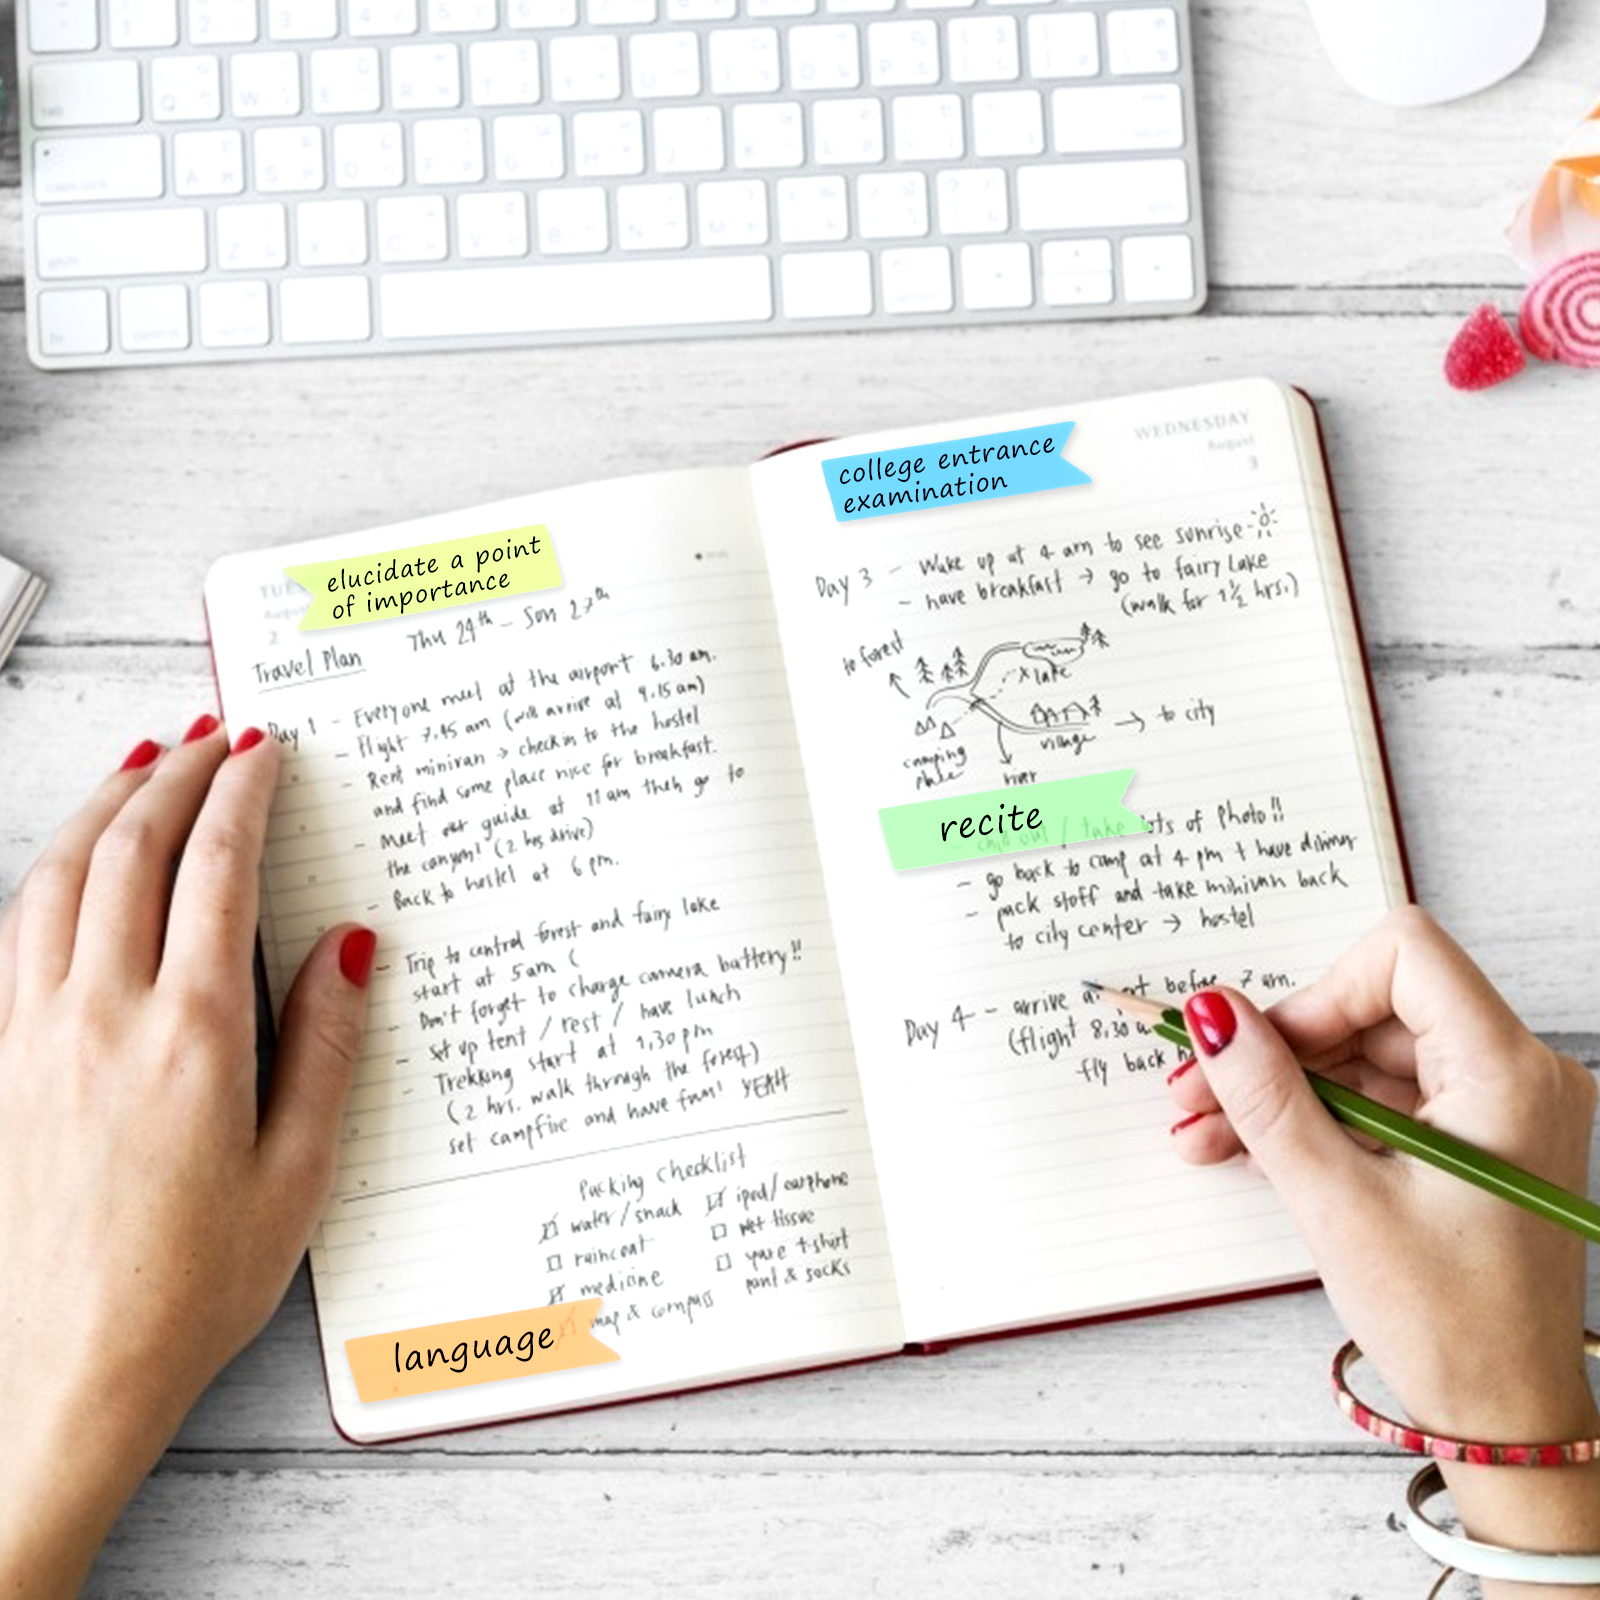 elucidate a point
of importance
August
2
Thu 29th - Sun 27th
Travel Plan
Day 1 - Everyone meet at the airport 6.30 am.
- Flight 7.45 am (will arrive at 9.15 am)
- Rent minivan → check in to the hostel
and find some place nice for breakfast.
- Meet our guide at 11 am then go to
the canyon! (2 hrs drive)
- Back to hostel at 6 pm.
- Trip to central forest and fairy lake
start at 5 am (
- Don't forget to charge camera battery!!
- Set up tent / rest / have lunch
- Trekking start at 1.30 pm
(2 hrs. walk through the forest)
set campfire and have fun! YEAH
Packing Checklist
water / snack
raincoat
medicine
map & compass
ipod / earphone
wet tissue
spare t-shirt
pant & socks
language
college entrance
examination
WEDNESDAY
August
3
Day 3 - Wake up at 4 am to see sunrise
- have breakfast → go to fairy Lake
(walk for 1½ hrs.)
to forest
x lake
camping
place
village
→ to city
river
recite
chill out / take lots of Photo!!
- go back to camp at 4 pm + have dinner
- pack stuff and take minivan back
to city center → hostel
Day 4 - arrive before 7 am.
(flight 8.30
fly back